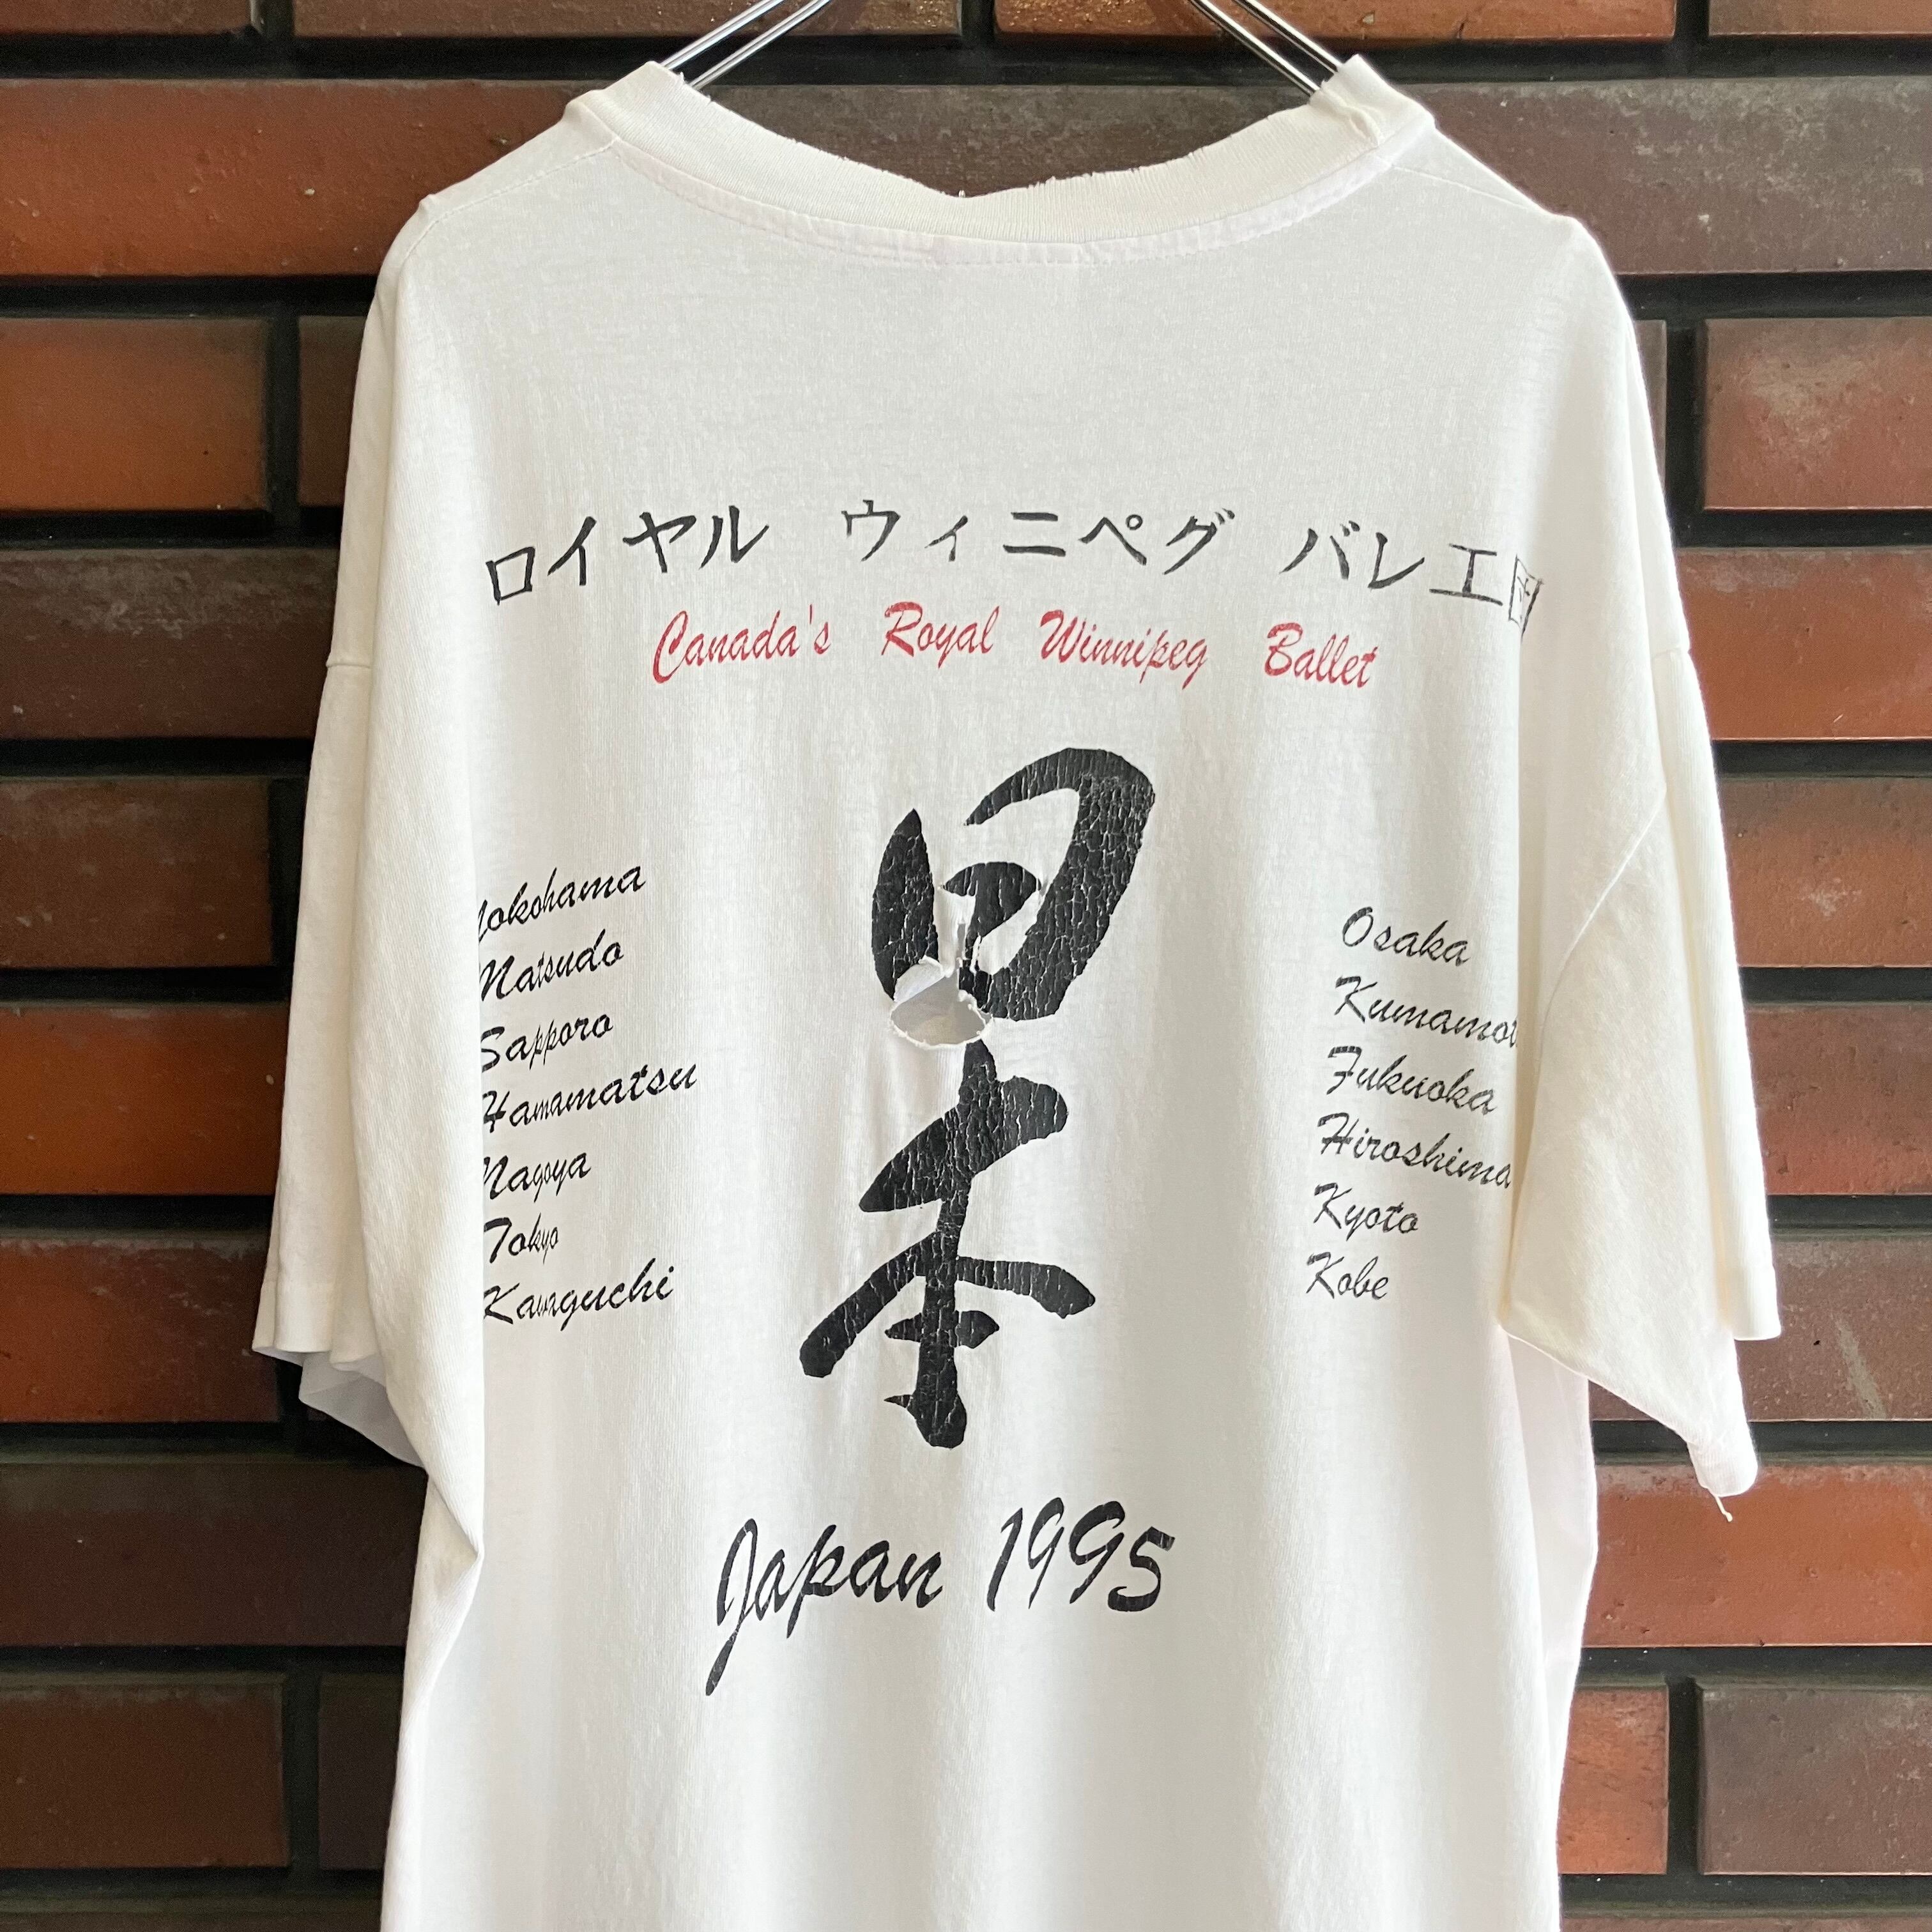 ロイヤル ウィニペグ バレエ団
Canada's Royal Winnipeg Ballet
日本
Yokohama
Matsudo
Sapporo
Hamamatsu
Nagoya
Tokyo
Kawaguchi
Osaka
Kumamot
Fukuoka
Hiroshima
Kyoto
Kobe
Japan 1995